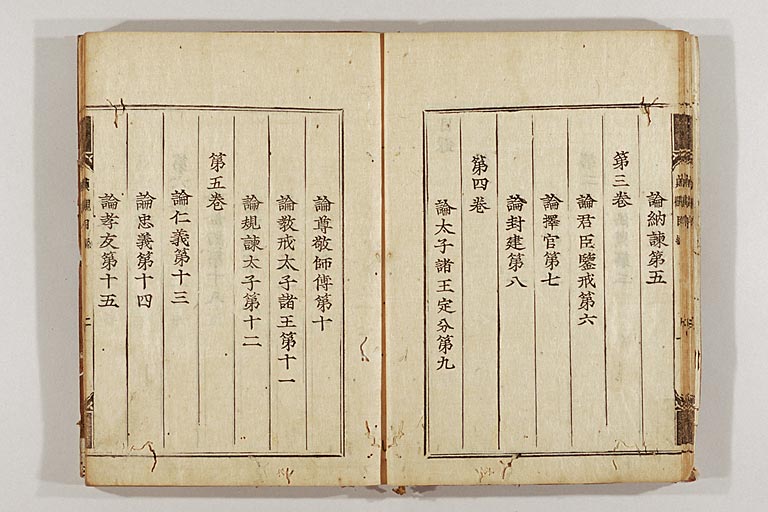 論納諫第五
第三卷
論君臣鑒戒第六
論擇官第七
論封建第八
第四卷
論太子諸王定分第九
論尊敬師傅第十
論教戒太子諸王第十一
論規諫太子第十二
第五卷
論仁義第十三
論忠義第十四
論孝友第十五